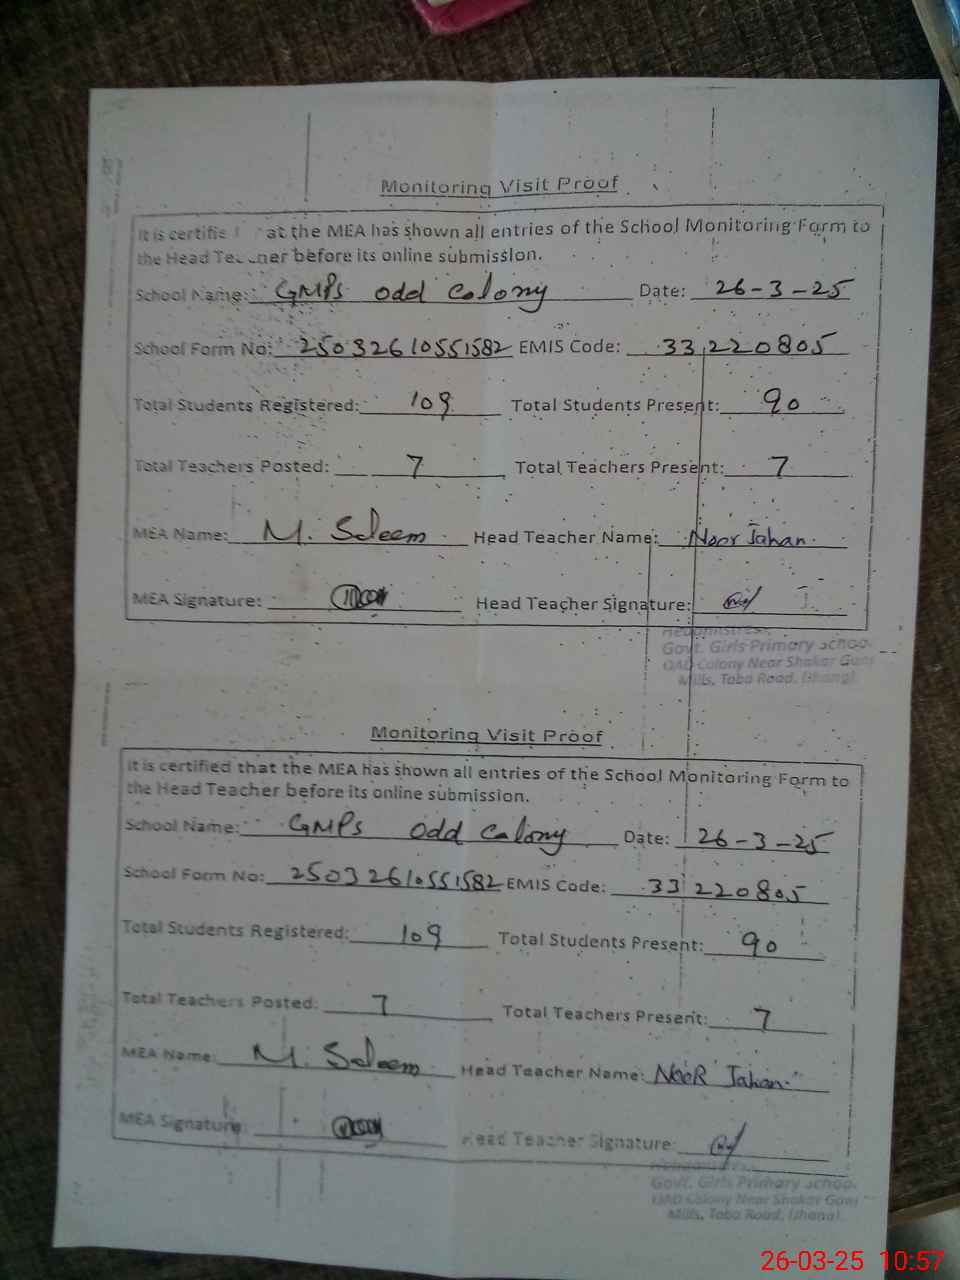 Monitoring Visit Proof
It is certifie at the MEA has shown all entries of the School Monitoring Form to
the Head Teacher before its online submission.
School Name: GMPS odd Colony Date: 26-3-25
School Form No: 25032610551582 EMIS Code: 33220805
Total Students Registered: 109 Total Students Present: 90
Total Teachers Posted: 7 Total Teachers Present: 7
MEA Name: M. Saleem Head Teacher Name: Noor Jahan.
MEA Signature: Head Teacher Signature:
Headmistress,
Govt. Girls Primary School
OAD Colony Near Shakar Ganj
Mills, Toba Road, (Jhang)
Monitoring Visit Proof
It is certified that the MEA has shown all entries of the School Monitoring Form to
the Head Teacher before its online submission.
School Name: GMPS odd Colony Date: 26-3-25
School Form No: 25032610551582 EMIS Code: 33220805
Total Students Registered: 109 Total Students Present: 90
Total Teachers Posted: 7 Total Teachers Present: 7
MEA Name: M. Saleem Head Teacher Name: NooR Jahan.
MEA Signature: Head Teacher Signature:
Govt. Girls Primary School
OAD Colony Near Shakar Ganj
Mills, Toba Road, (Jhang)
26-03-25 10:57